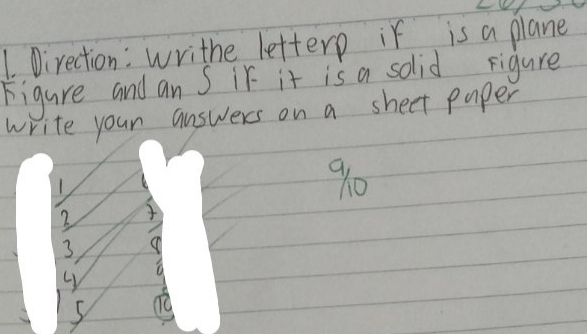 1. Direction: Writhe letterp if is a plane
Figure and an S if it is a solid Figure
write your answers on a sheet paper
9/10
1
2
3
4
5
7
8
9
10